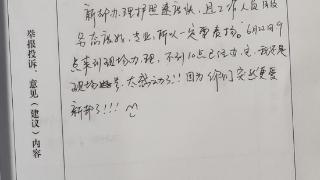 举报投诉、意见(建议)内容
新都办理护照速度快,且工作人员服
务态度好,专业,所以一定要表扬。6月22日9
点来到现场办理,不到10点已经办完,我还是
现场拍照,太感动了!!因为你们实在更爱
新都了!!!